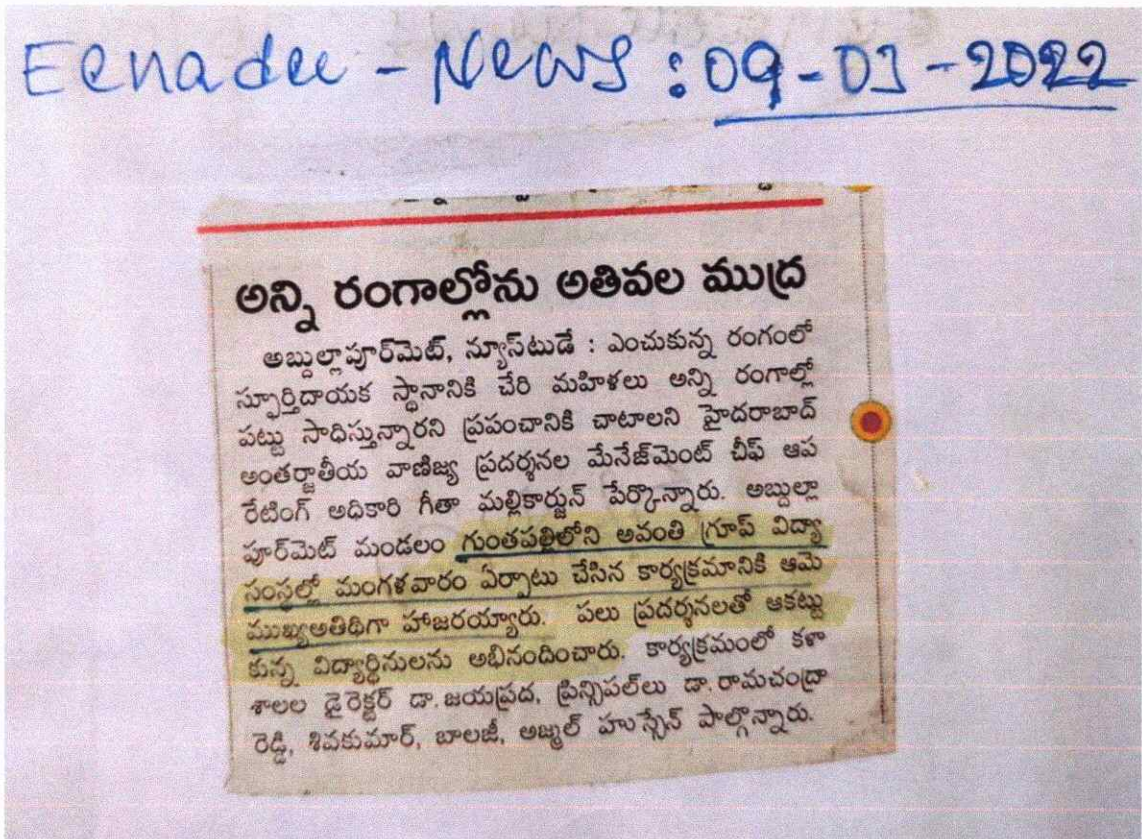 Eenadu - News : 09-03-2022
అన్ని రంగాల్లోను అతివల ముద్ర
అబ్దుల్లాపూర్‌మెట్, న్యూస్‌టుడే : ఎంచుకున్న రంగంలో
స్ఫూర్తిదాయక స్థానానికి చేరి మహిళలు అన్ని రంగాల్లో
పట్టు సాధిస్తున్నారని ప్రపంచానికి చాటాలని హైదరాబాద్
అంతర్జాతీయ వాణిజ్య ప్రదర్శనల మేనేజ్‌మెంట్ చీఫ్ ఆప
రేటింగ్ అధికారి గీతా మల్లికార్జున్ పేర్కొన్నారు. అబ్దుల్లా
పూర్‌మెట్ మండలం గుంతపల్లిలోని అవంతి గ్రూప్ విద్యా
సంస్థల్లో మంగళవారం ఏర్పాటు చేసిన కార్యక్రమానికి ఆమె
ముఖ్యఅతిథిగా హాజరయ్యారు. పలు ప్రదర్శనలతో ఆకట్టు
కున్న విద్యార్థినులను అభినందించారు. కార్యక్రమంలో కళా
శాలల డైరెక్టర్ డా.జయప్రద, ప్రిన్సిపల్‌లు డా.రామచంద్రా
రెడ్డి, శివకుమార్, బాలజీ, అజ్మల్ హుస్సేన్ పాల్గొన్నారు.